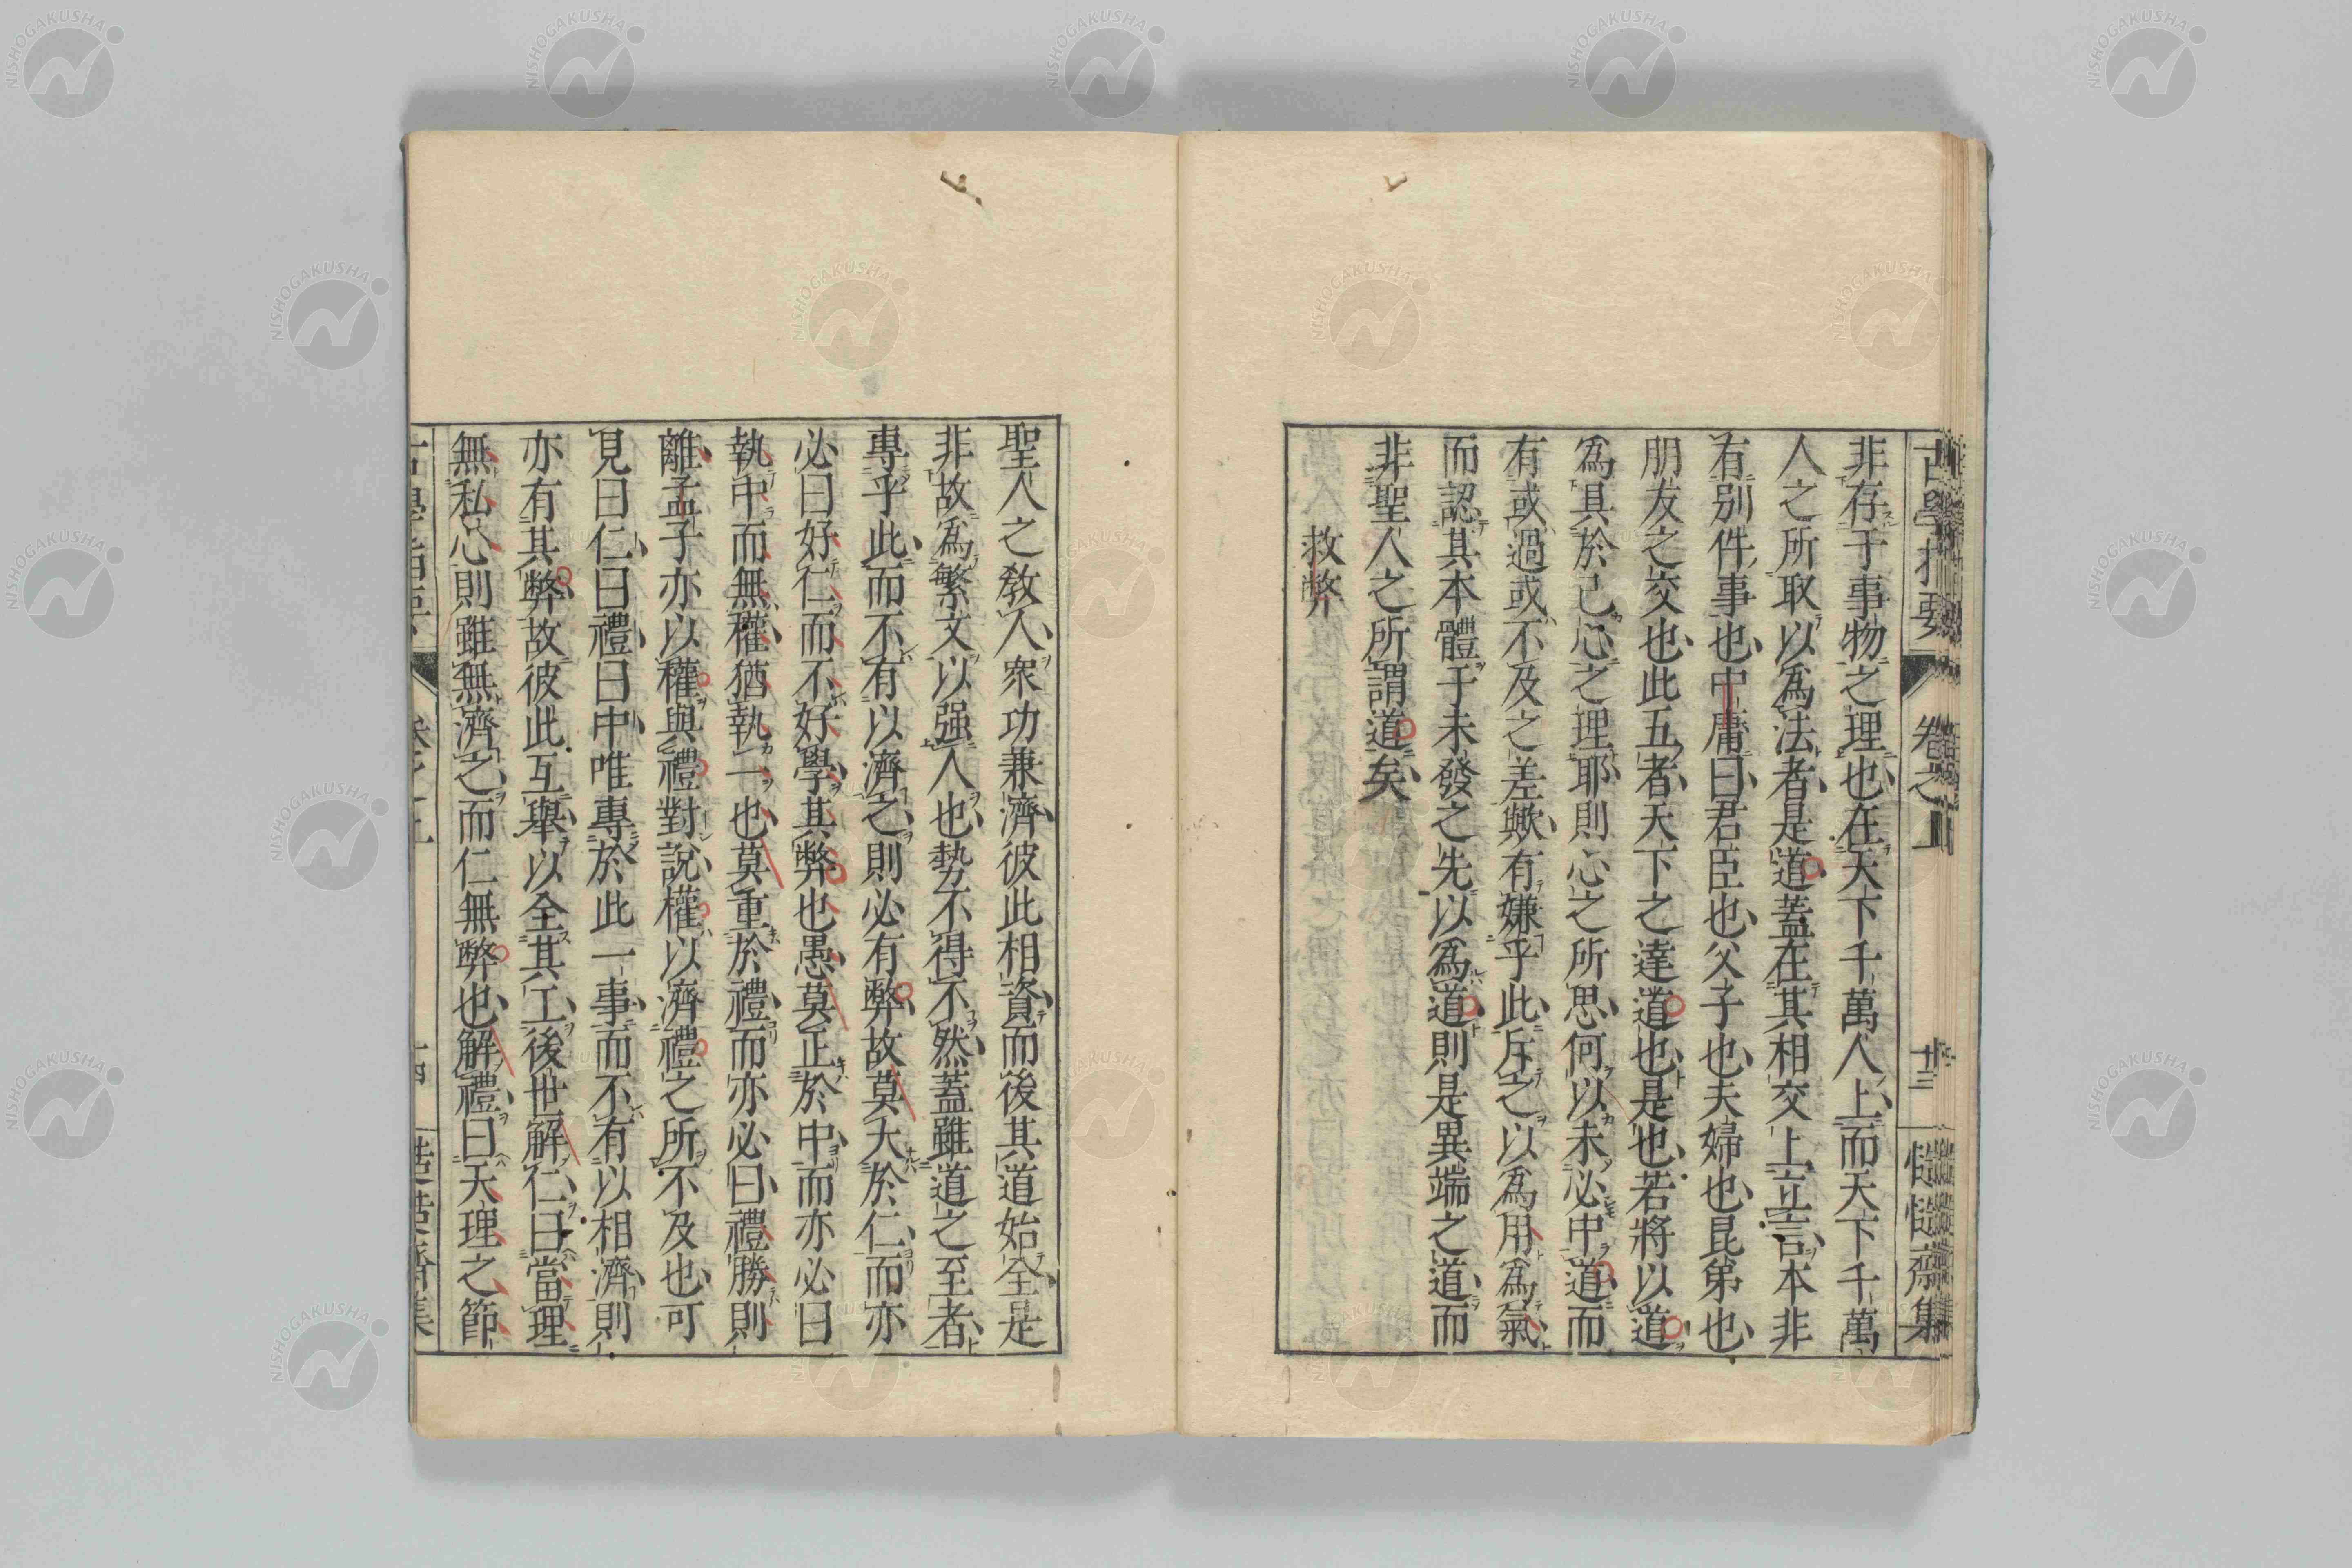 古學指要 卷之上 廿三 慥慥齋集
非存于事物之理也在天下千萬人上而天下千萬
人之所取以爲法者是道蓋在其相交上立言本非
有別件事也中庸曰君臣也父子也夫婦也昆弟也
朋友之交也此五者天下之達道也是也若將以道
爲具於己心之理耶則心之所思何以未必中道而
有或過或不及之差歟有嫌乎此斥之以爲用爲氣
而認其本體于未發之先以爲道則是異端之道而
非聖人之所謂道矣
救弊
聖人之教人衆功兼濟彼此相資而後其道始全是
非故爲繁文以强人也勢不得不然蓋雖道之至者
專乎此而不有以濟之則必有弊故莫大於仁而亦
必曰好仁而不好學其弊也愚莫正於中而亦必曰
執中而無權猶執一也莫重於禮而亦必曰禮勝則
離孟子亦以權與禮對說權以濟禮之所不及也可
見曰仁曰禮曰中唯專於此一事而不有以相濟則
亦有其弊故彼此互舉以全其工後世解仁曰當理
無私心則雖無濟之而仁無弊也解禮曰天理之節
NISHOGAKUSHA